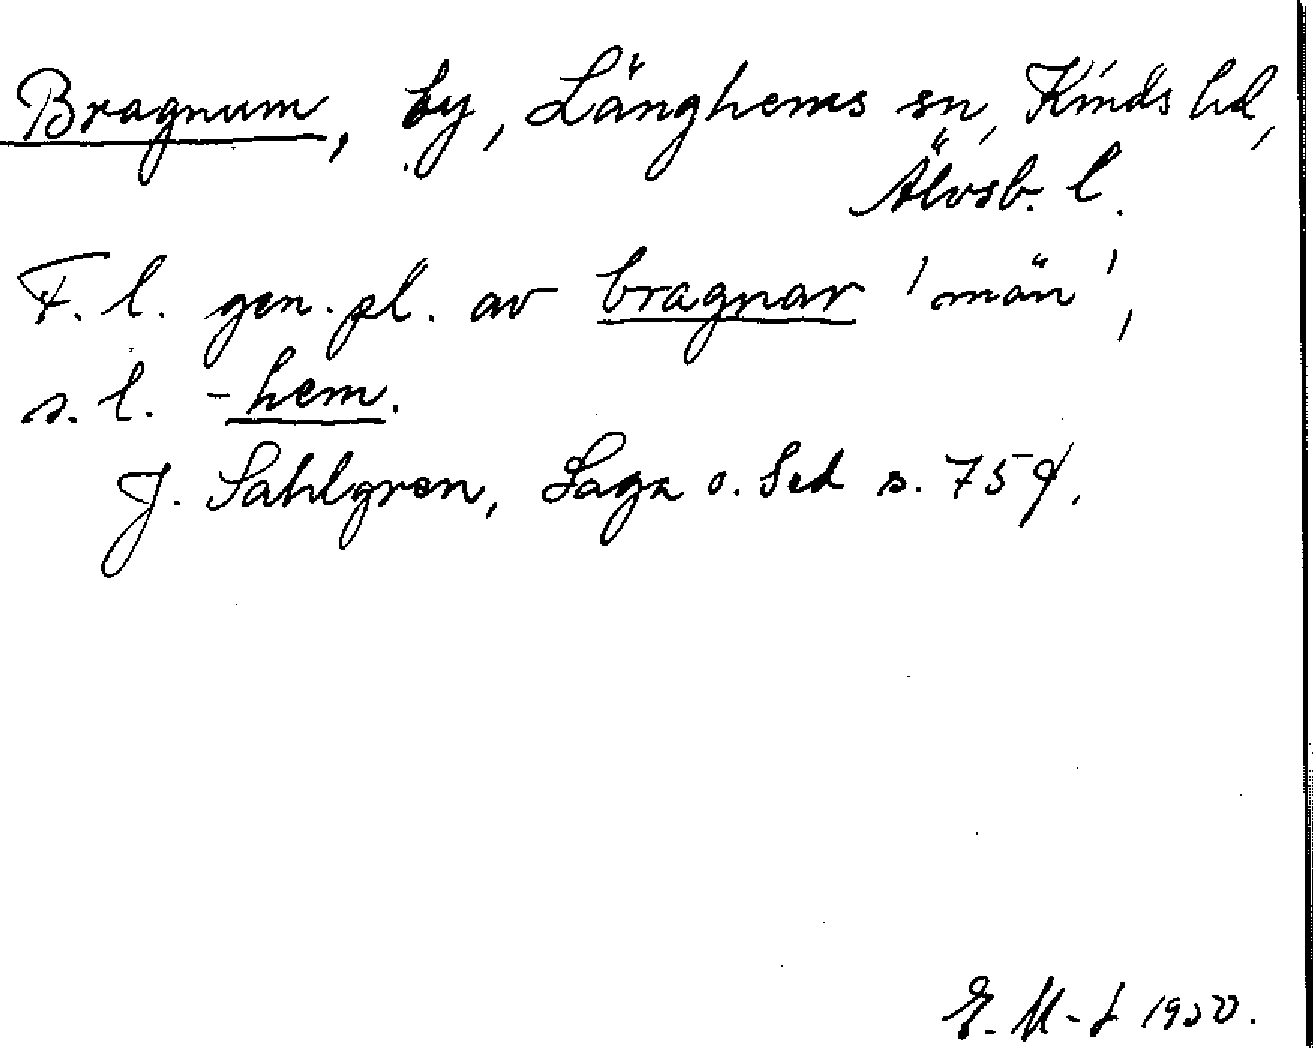 Bragnum, by, Länghems sn, Kinds hd,
Älvsb. l.
F. l. gen. pl. av bragnar 'män',
s. l. -hem.
J. Sahlgren, Saga o. Sed s. 75 f.
E. M-t